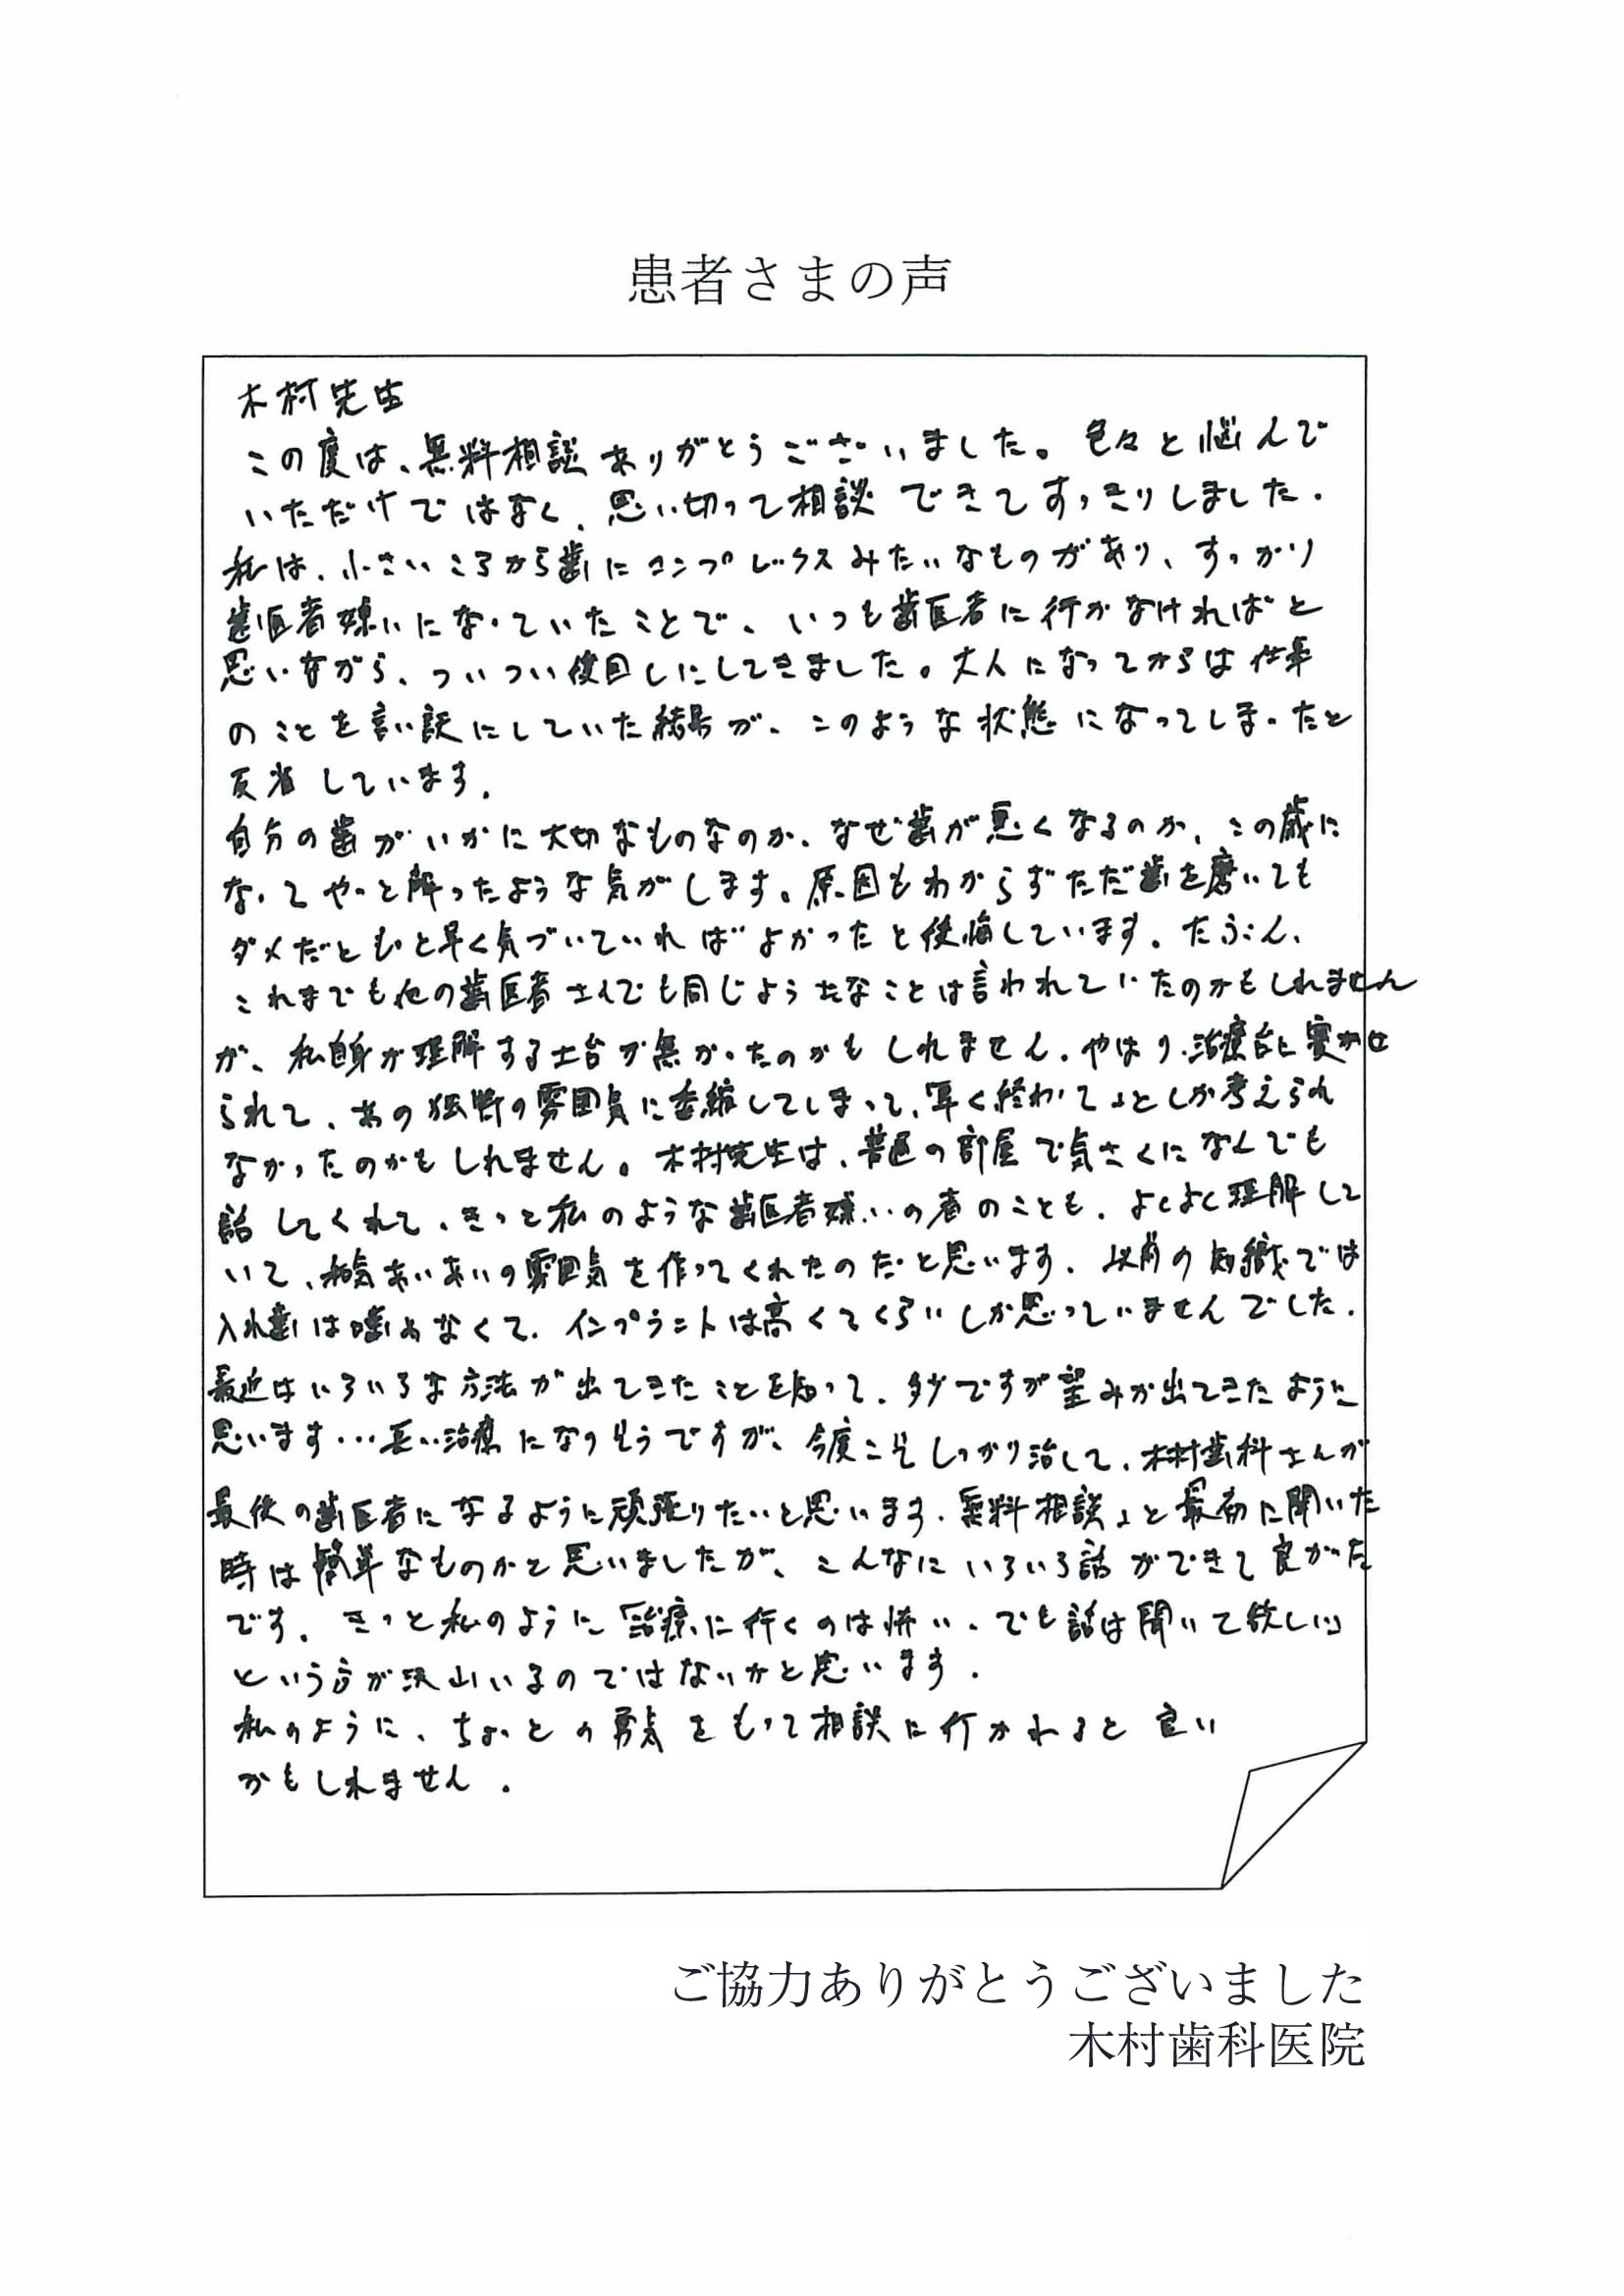 患者さまの声
木村先生
この度は、無料相談ありがとうございました。色々と悩んで
いただけではなく、思い切って相談できてすっきりしました.
私は、小さいころから歯にコンプレックスみたいなものがあり、すっかり
歯医者嫌いになっていたことで、いつも歯医者に行かなければと
思いながら、ついつい後回しにしてきました。大人になってからは仕事
のことを言い訳にしていた結果が、このような状態になってしまったと
反省しています.
自分の歯がいかに大切なものなのか、なぜ歯が悪くなるのか、この歳に
なってやっと解ったような気がします。原因もわからずただ歯を磨いても
ダメだともっと早く気づいていればよかったと後悔しています. たぶん、
これまでも他の歯医者さんでも同じようなことは言われていたのかもしれません
が、私自身が理解する土台が無かったのかもしれません. やはり、治療台に寝かせ
られて、あの独特の雰囲気に委縮してしまって、「早く終わって」としか考えられ
なかったのかもしれません。木村先生は、普通の部屋で気さくになんでも
話してくれて、きっと私のような歯医者嫌いの者のことも、よくよく理解して
いて、和気あいあいの雰囲気を作ってくれたのだと思います. 以前の知識では
入れ歯は噛めなくて、インプラントは高くてくらいしか思っていませんでした.
最近はいろいろな方法が出てきたことを知って、多少ですが望みが出てきたように
思います…長い治療になりそうですが、今度こそしっかり治して、木村歯科さんが
最後の歯医者になるように頑張りたいと思います.「無料相談」と最初に聞いた
時は簡単なものかと思いましたが、こんなにいろいろ話ができて良かった
です. きっと私のように「治療に行くのは怖い、でも話は聞いて欲しい」
という方が沢山いるのではないかと思います.
私のように、ちょっとの勇気をもって相談に行かれると良い
かもしれません.
ご協力ありがとうございました
木村歯科医院